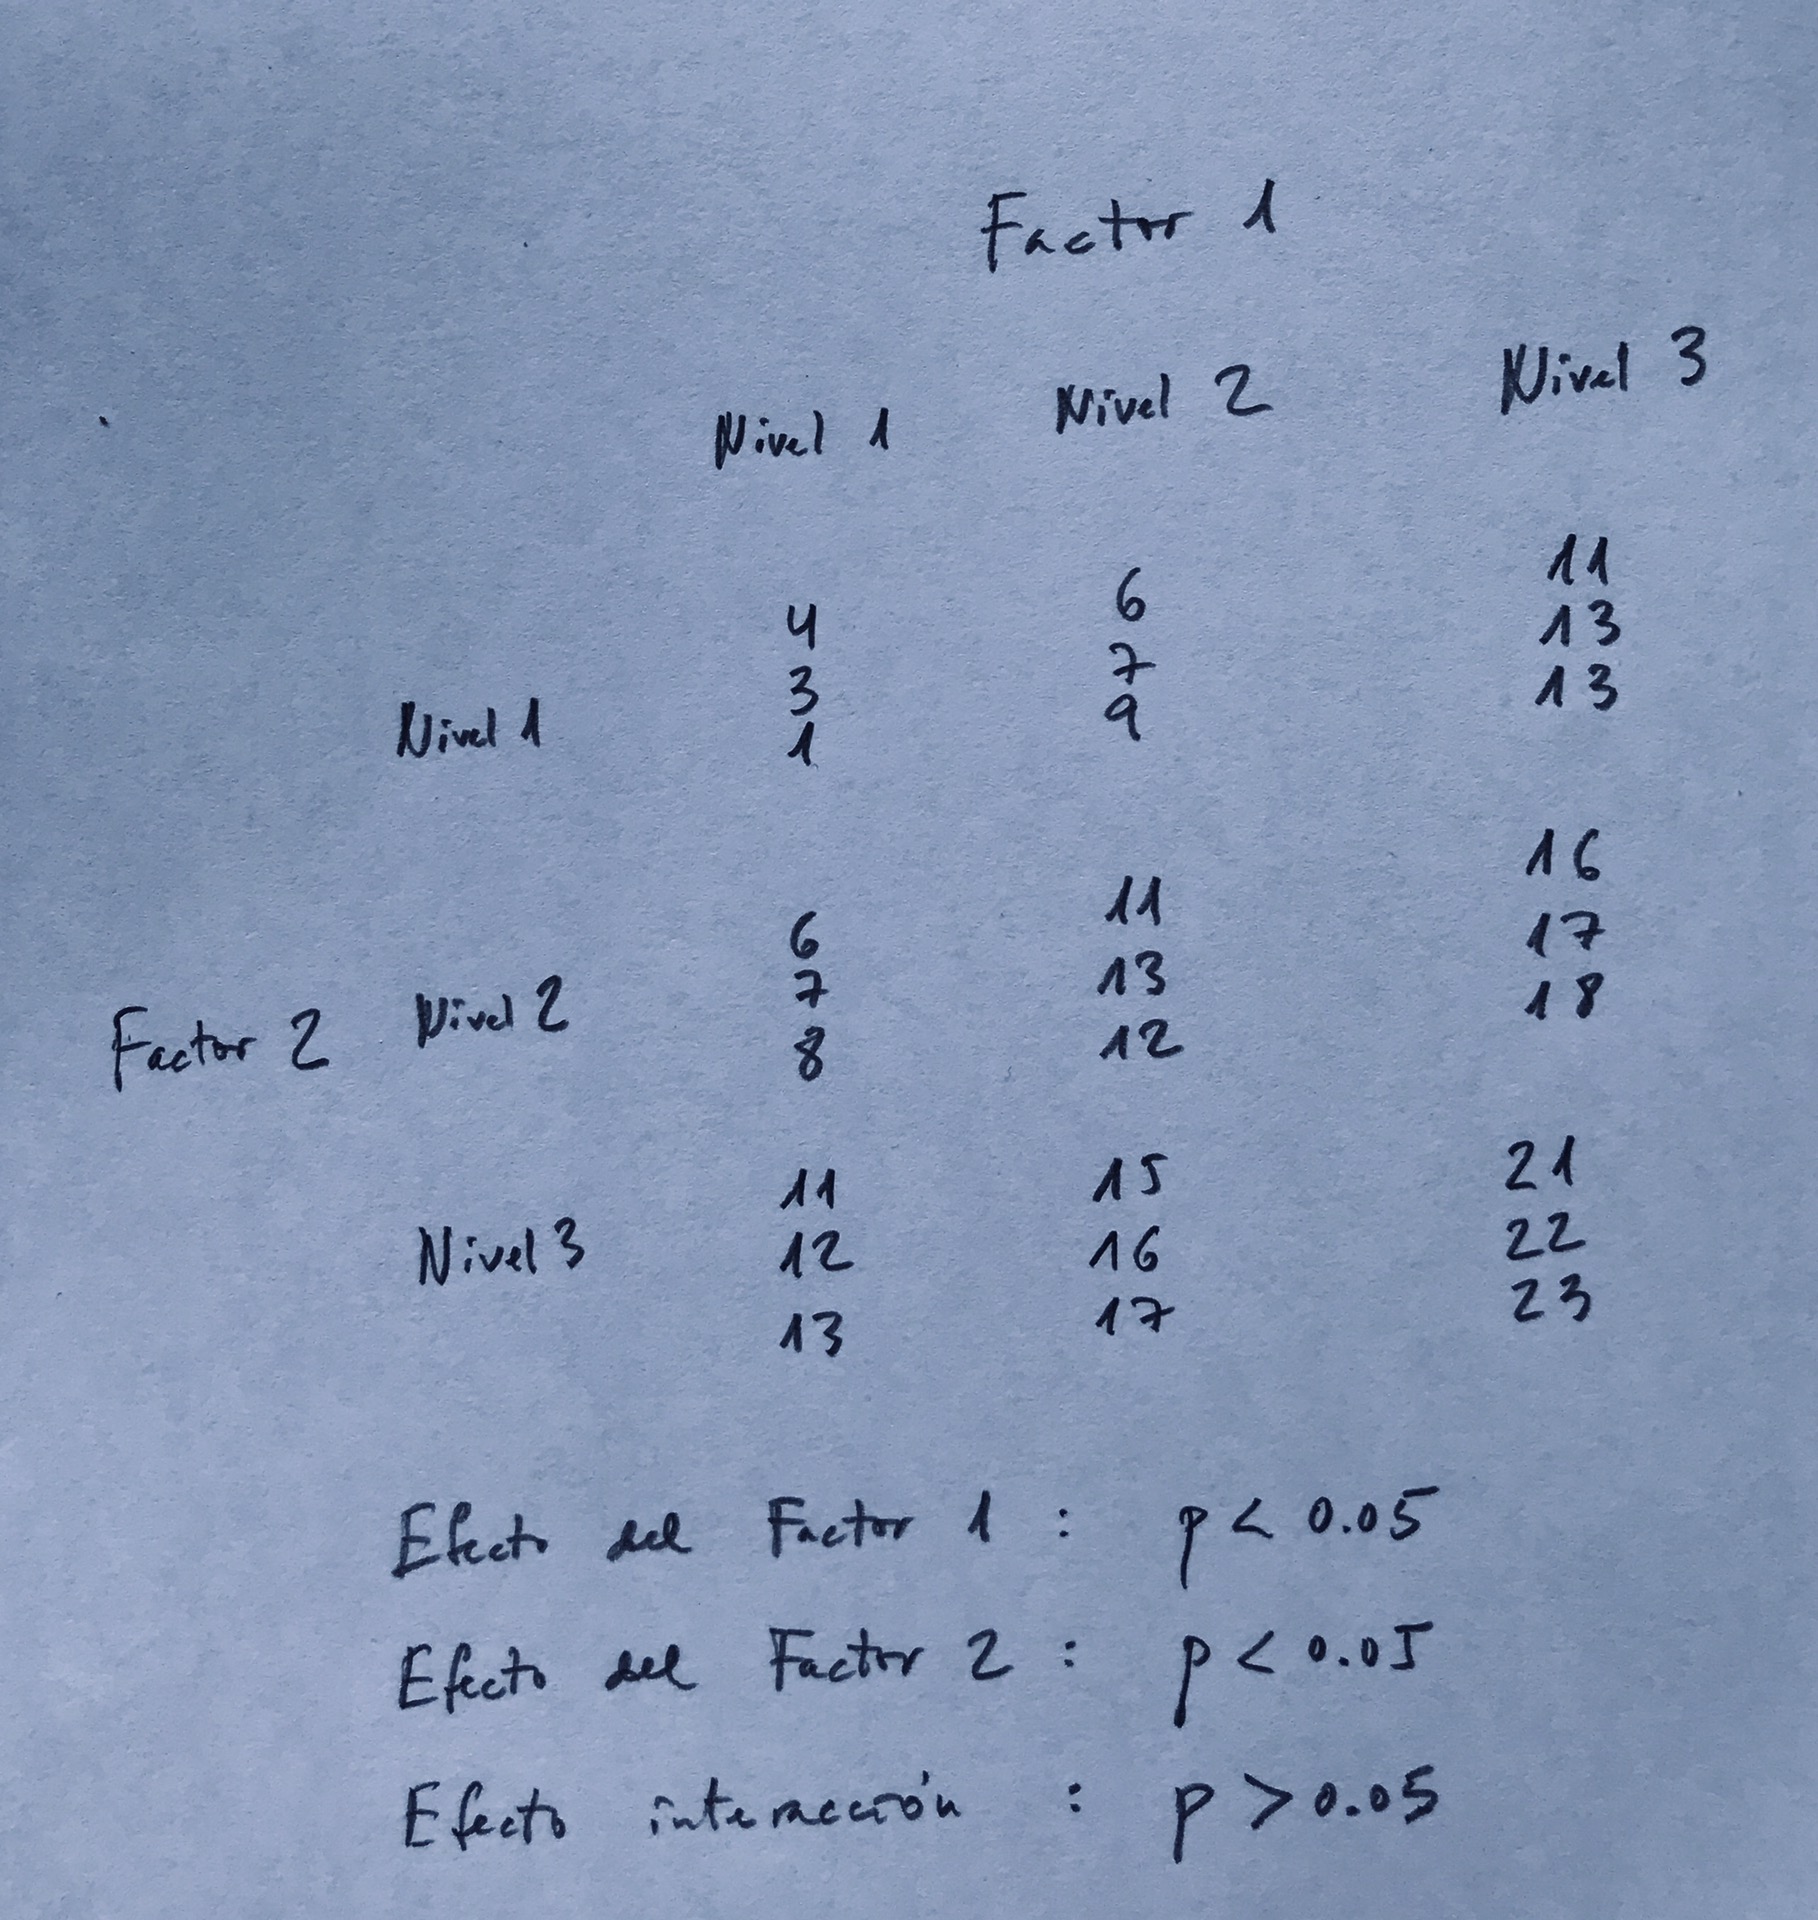 Factor 1
Nivel 1 Nivel 2 Nivel 3
4 6 11
3 7 13
Nivel 1 1 9 13
6 11 16
7 13 17
Factor 2 Nivel 2 8 12 18
11 15 21
Nivel 3 12 16 22
13 17 23
Efecto del Factor 1 : p < 0.05
Efecto del Factor 2 : p < 0.05
Efecto interacción : p > 0.05